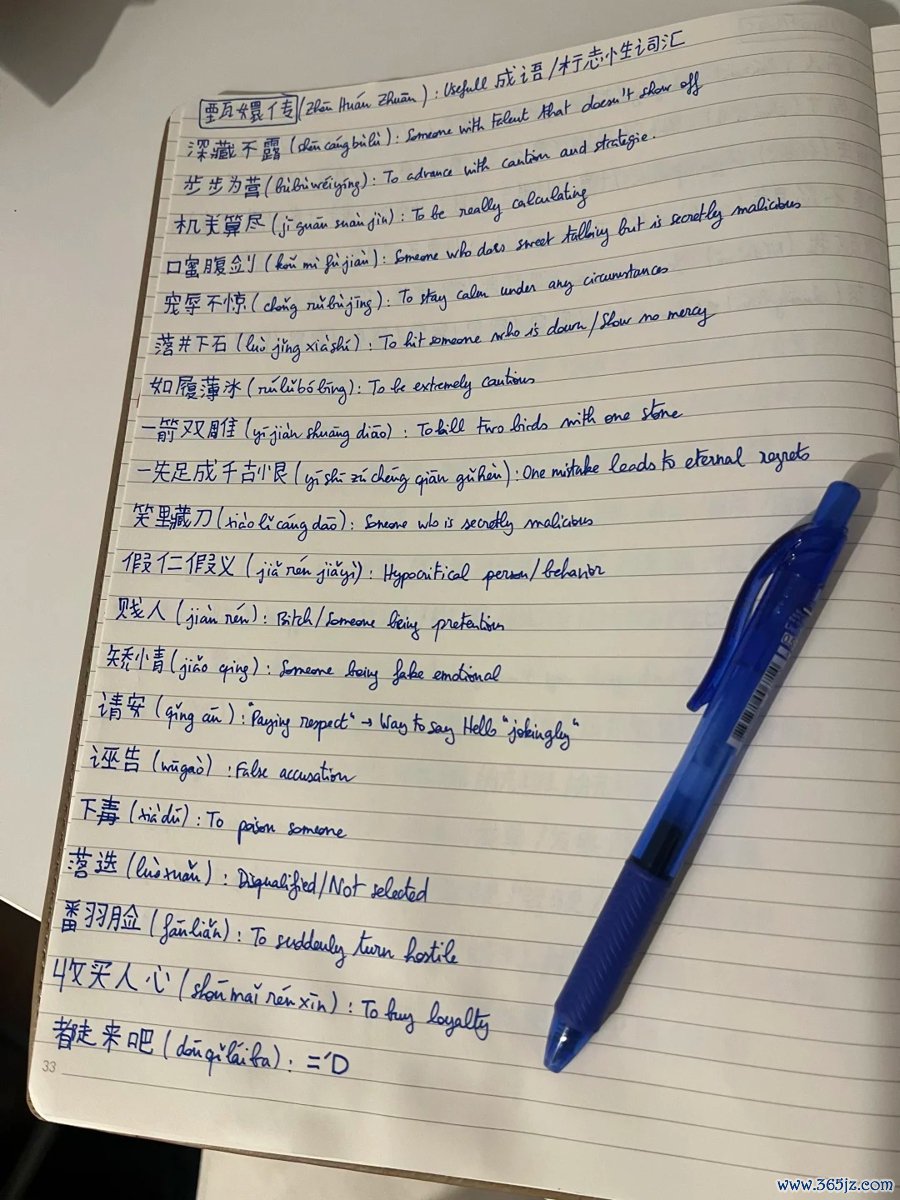 甄嬛传 (Zhēn Huán Zhuān) : Usefull 成语/标志性词汇
深藏不露 (shēn cáng bù lù) : Someone with talent that doesn't show off
步步为营 (bù bù wéi yíng) : To advance with caution and strategie.
机关算尽 (jī guān suàn jìn) : To be really calculating
口蜜腹剑 (kǒu mì fù jiàn) : Someone who does sweet talking but is secretly malicious
宠辱不惊 (chǒng rǔ bù jīng) : To stay calm under any circumstances
落井下石 (luò jǐng xià shí) : To hit someone who is down / Show no mercy
如履薄冰 (rú lǚ bó bīng) : To be extremely cautious
一箭双雕 (yī jiàn shuāng diāo) : To kill two birds with one stone
一失足成千古恨 (yī shī zú chéng qiān gǔ hèn) : One mistake leads to eternal regrets
笑里藏刀 (xiào lǐ cáng dāo) : Someone who is secretly malicious
假仁假义 (jiǎ rén jiǎ yì) : Hypocritical person/behavior
贱人 (jiàn rén) : Bitch/Someone being pretentious
矫情 (jiǎo qing) : Someone being fake emotional
请安 (qǐng ān) : "Paying respect" → Way to say Hello "jokingly"
诬告 (wūgào) : False accusation
下毒 (xiàdú) : To poison someone
落选 (luòxuǎn) : Disqualified/Not selected
翻脸 (fānliǎn) : To suddenly turn hostile
收买人心 (shōu mǎi rén xīn) : To buy loyalty
都起来吧 (dōu qǐ lái ba) : ='D
33
www.365jz.com